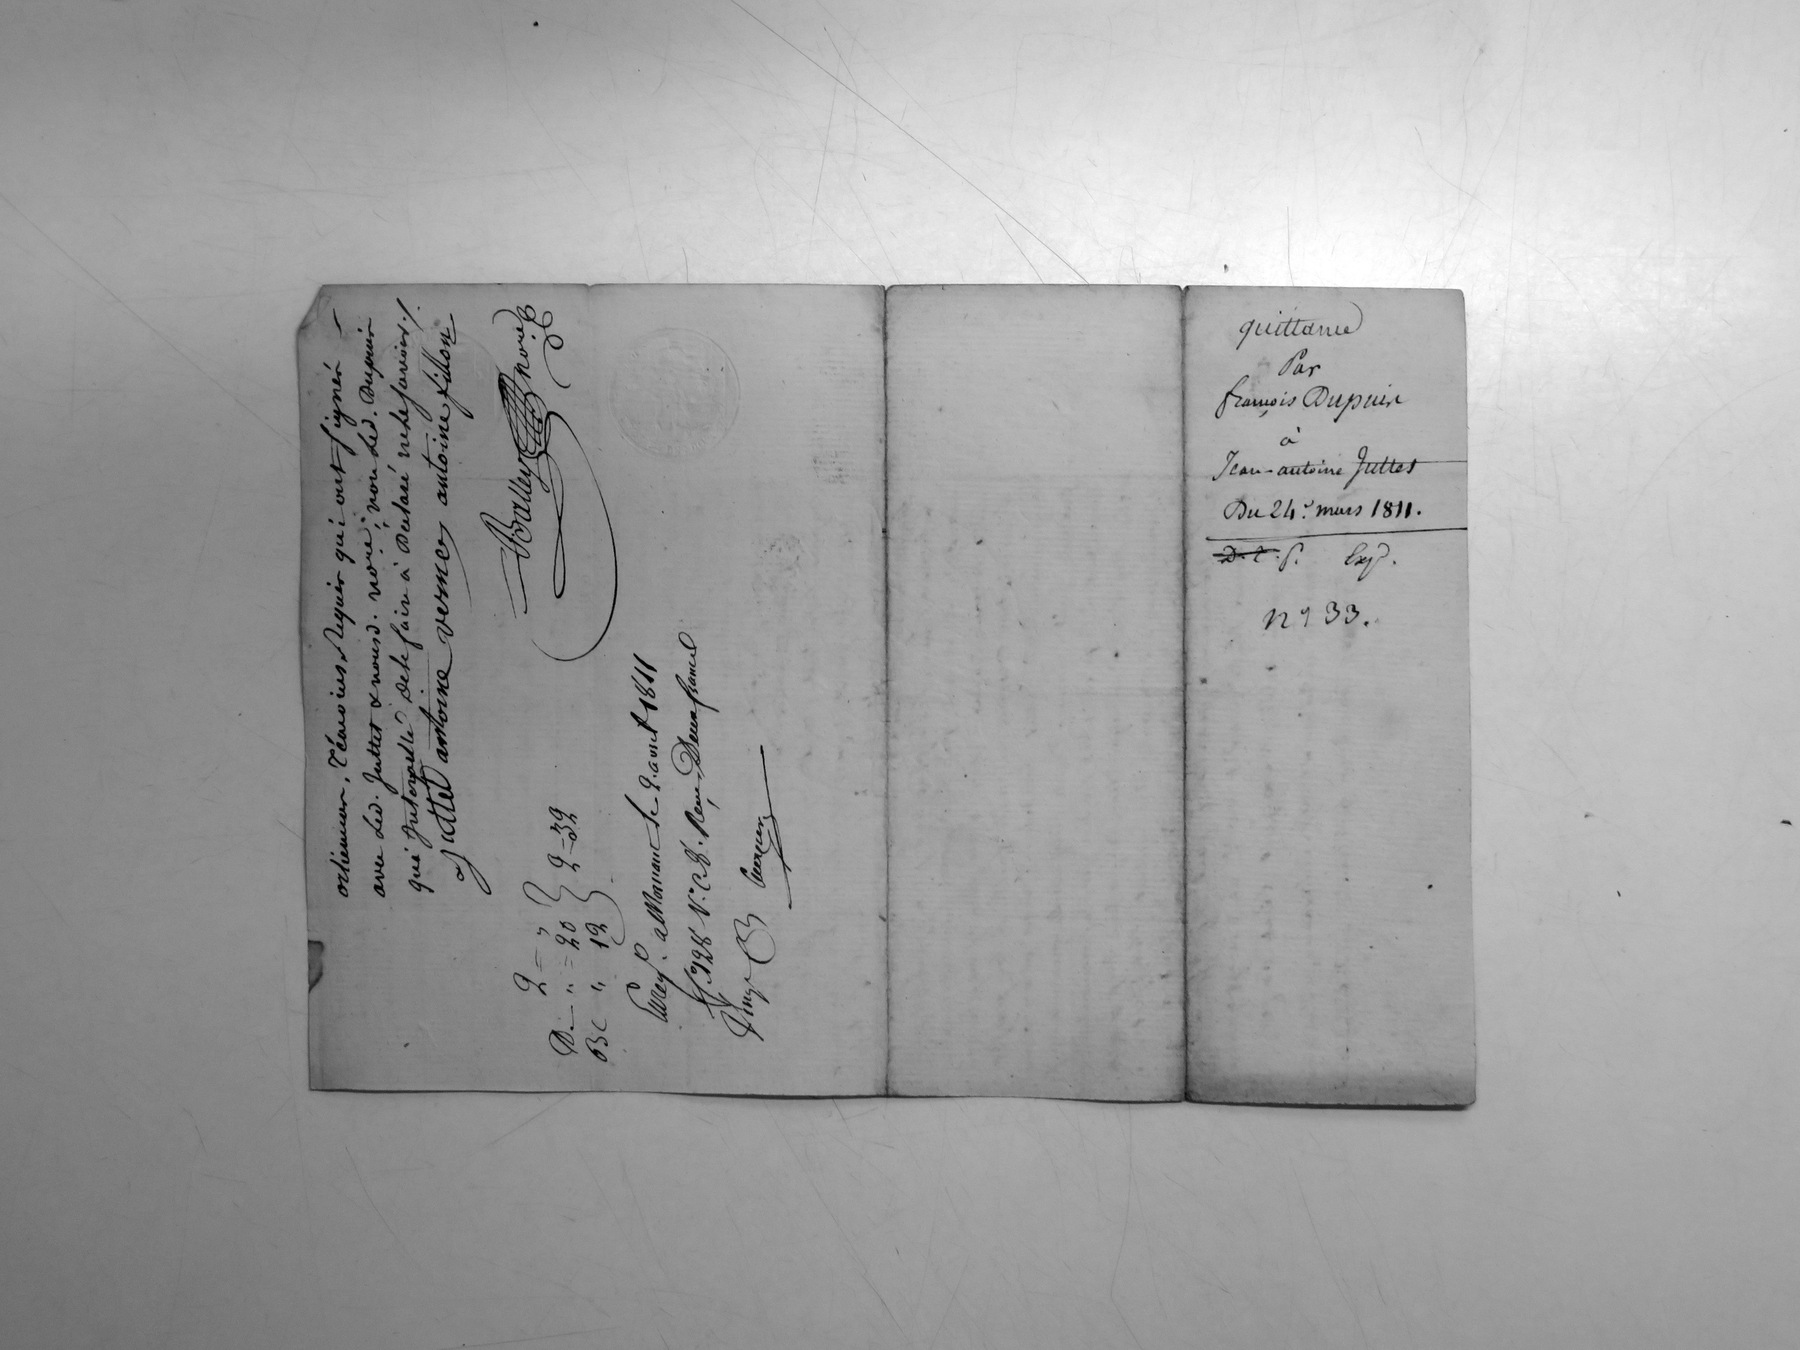 ottiennon, Témoins Requis qui ont signés
avec led. Juttet & nousd. notre, non led. Dupuin
qui Interpellé de le faire à Déclaré ne le savoir./.
Juttet antoine verney antoine fillon
Balley noire
D. 2 = "
" = 20
BC " 12
2 = 32
Enreg. à Mornant le 2 avril 1811
f° 128 V. C. 8. Reçu Deux francs
Vingt
quittance
Par
françois Dupuin
à
Jean-antoine Juttet
Du 24. mars 1811.
D. t. p. Exp.
n° 33.